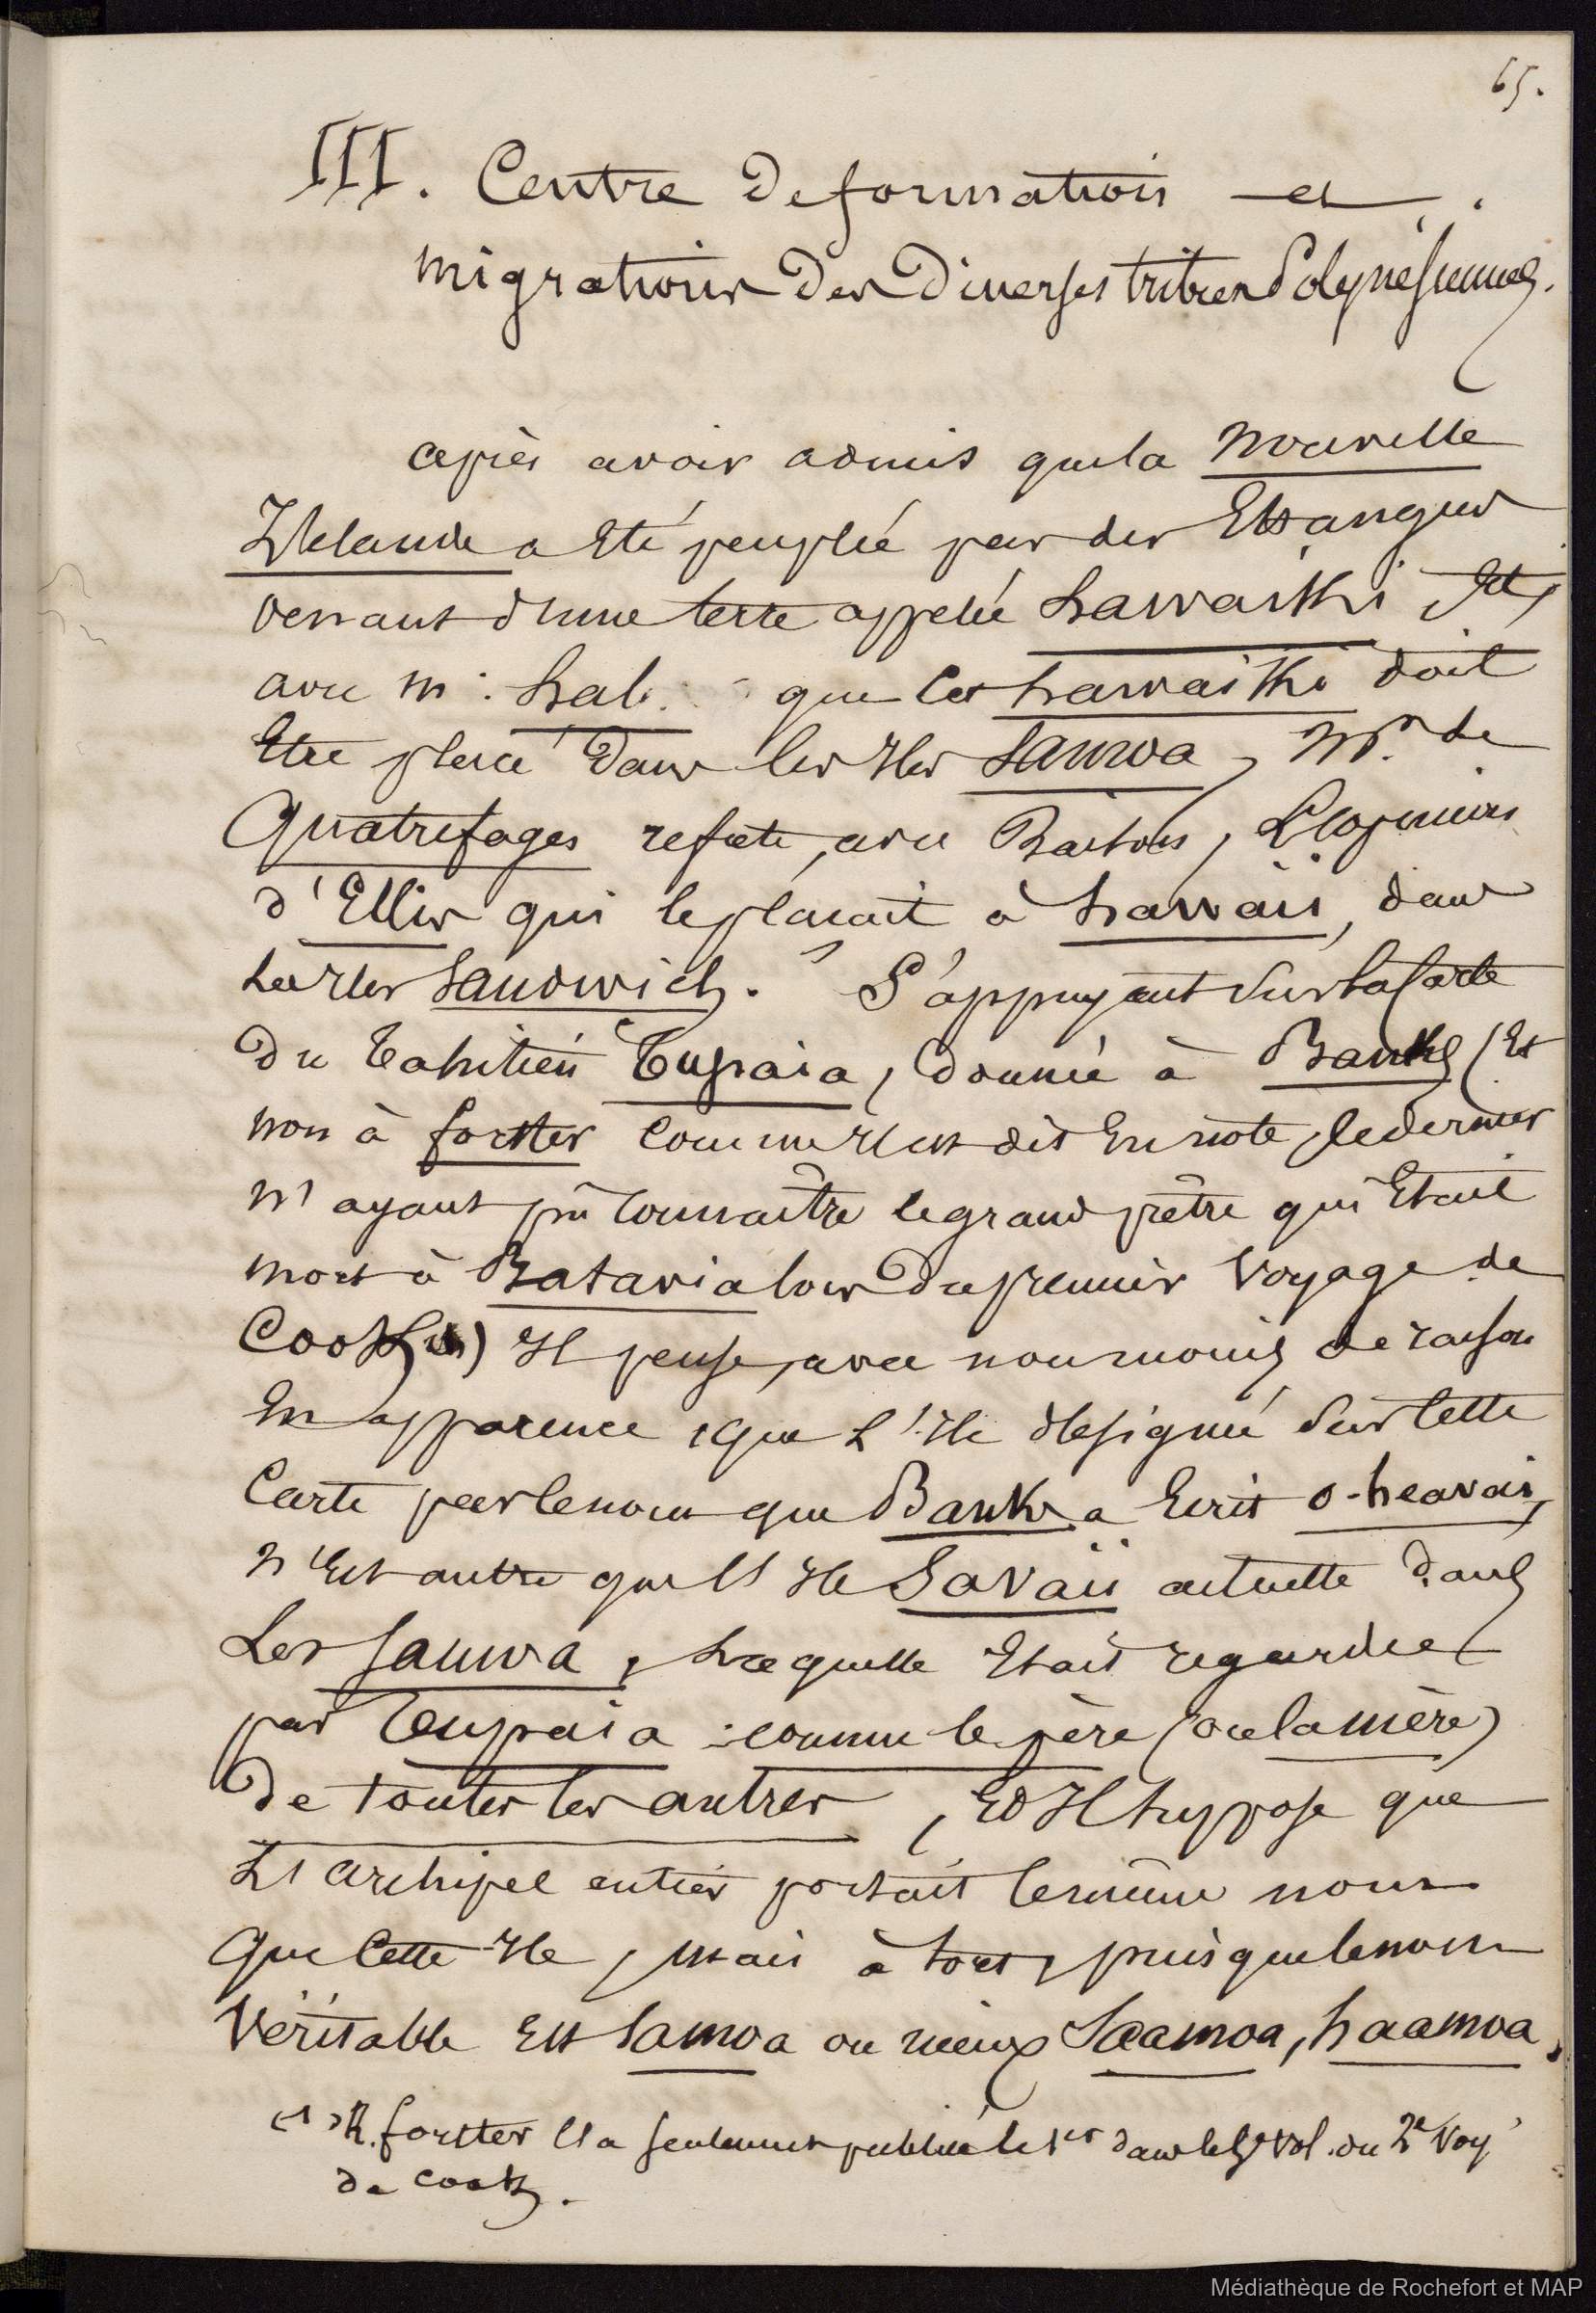 65.
III. Centre de formation et
migrations des diverses tribus Polynésiennes.
après avoir admis que la Nouvelle
Zélande a été peuplée par des Etrangers
venant d'une terre appelée hawaïki et,
avec Mr. hale que cet hawaïki doit
Etre placé dans les Iles Samoa, Mr. de
Quatrefages refute, avec raison, L'opinion
d'Ellis qui le plaçait à hawaii, dans
Les Iles Sandwich. S'appuyant sur la Carte
du Tahitien Tupaia, donnée à Banks (Et
non à forster comme Il est dit En note, ce dernier
n'ayant pû connaître le grand prêtre qui Etait
mort à Batavia lors du premier Voyage de
Cook (1)) Il pense, avec non moins de raison
En apparence, que L'Ile désignée sur cette
Carte par le nom que Banks a Ecrit o-heavai,
n'Est autre que l'Ile Savaii actuelle dans
Les Samoa, Laquelle Etait regardée
par Tupaia comme le père (ou la mère)
de toutes les autres, Et Il suppose que
L'archipel entier portait le même nom
que cette Ile, mais à tort, puisque le nom
Véritable Est Samoa ou mieux Saamoa, haamoa.
(1) R. forster l'a seulement publiée le 1er dans le vol. du 2e Voy.
de Cook.
Médiathèque de Rochefort et MAP